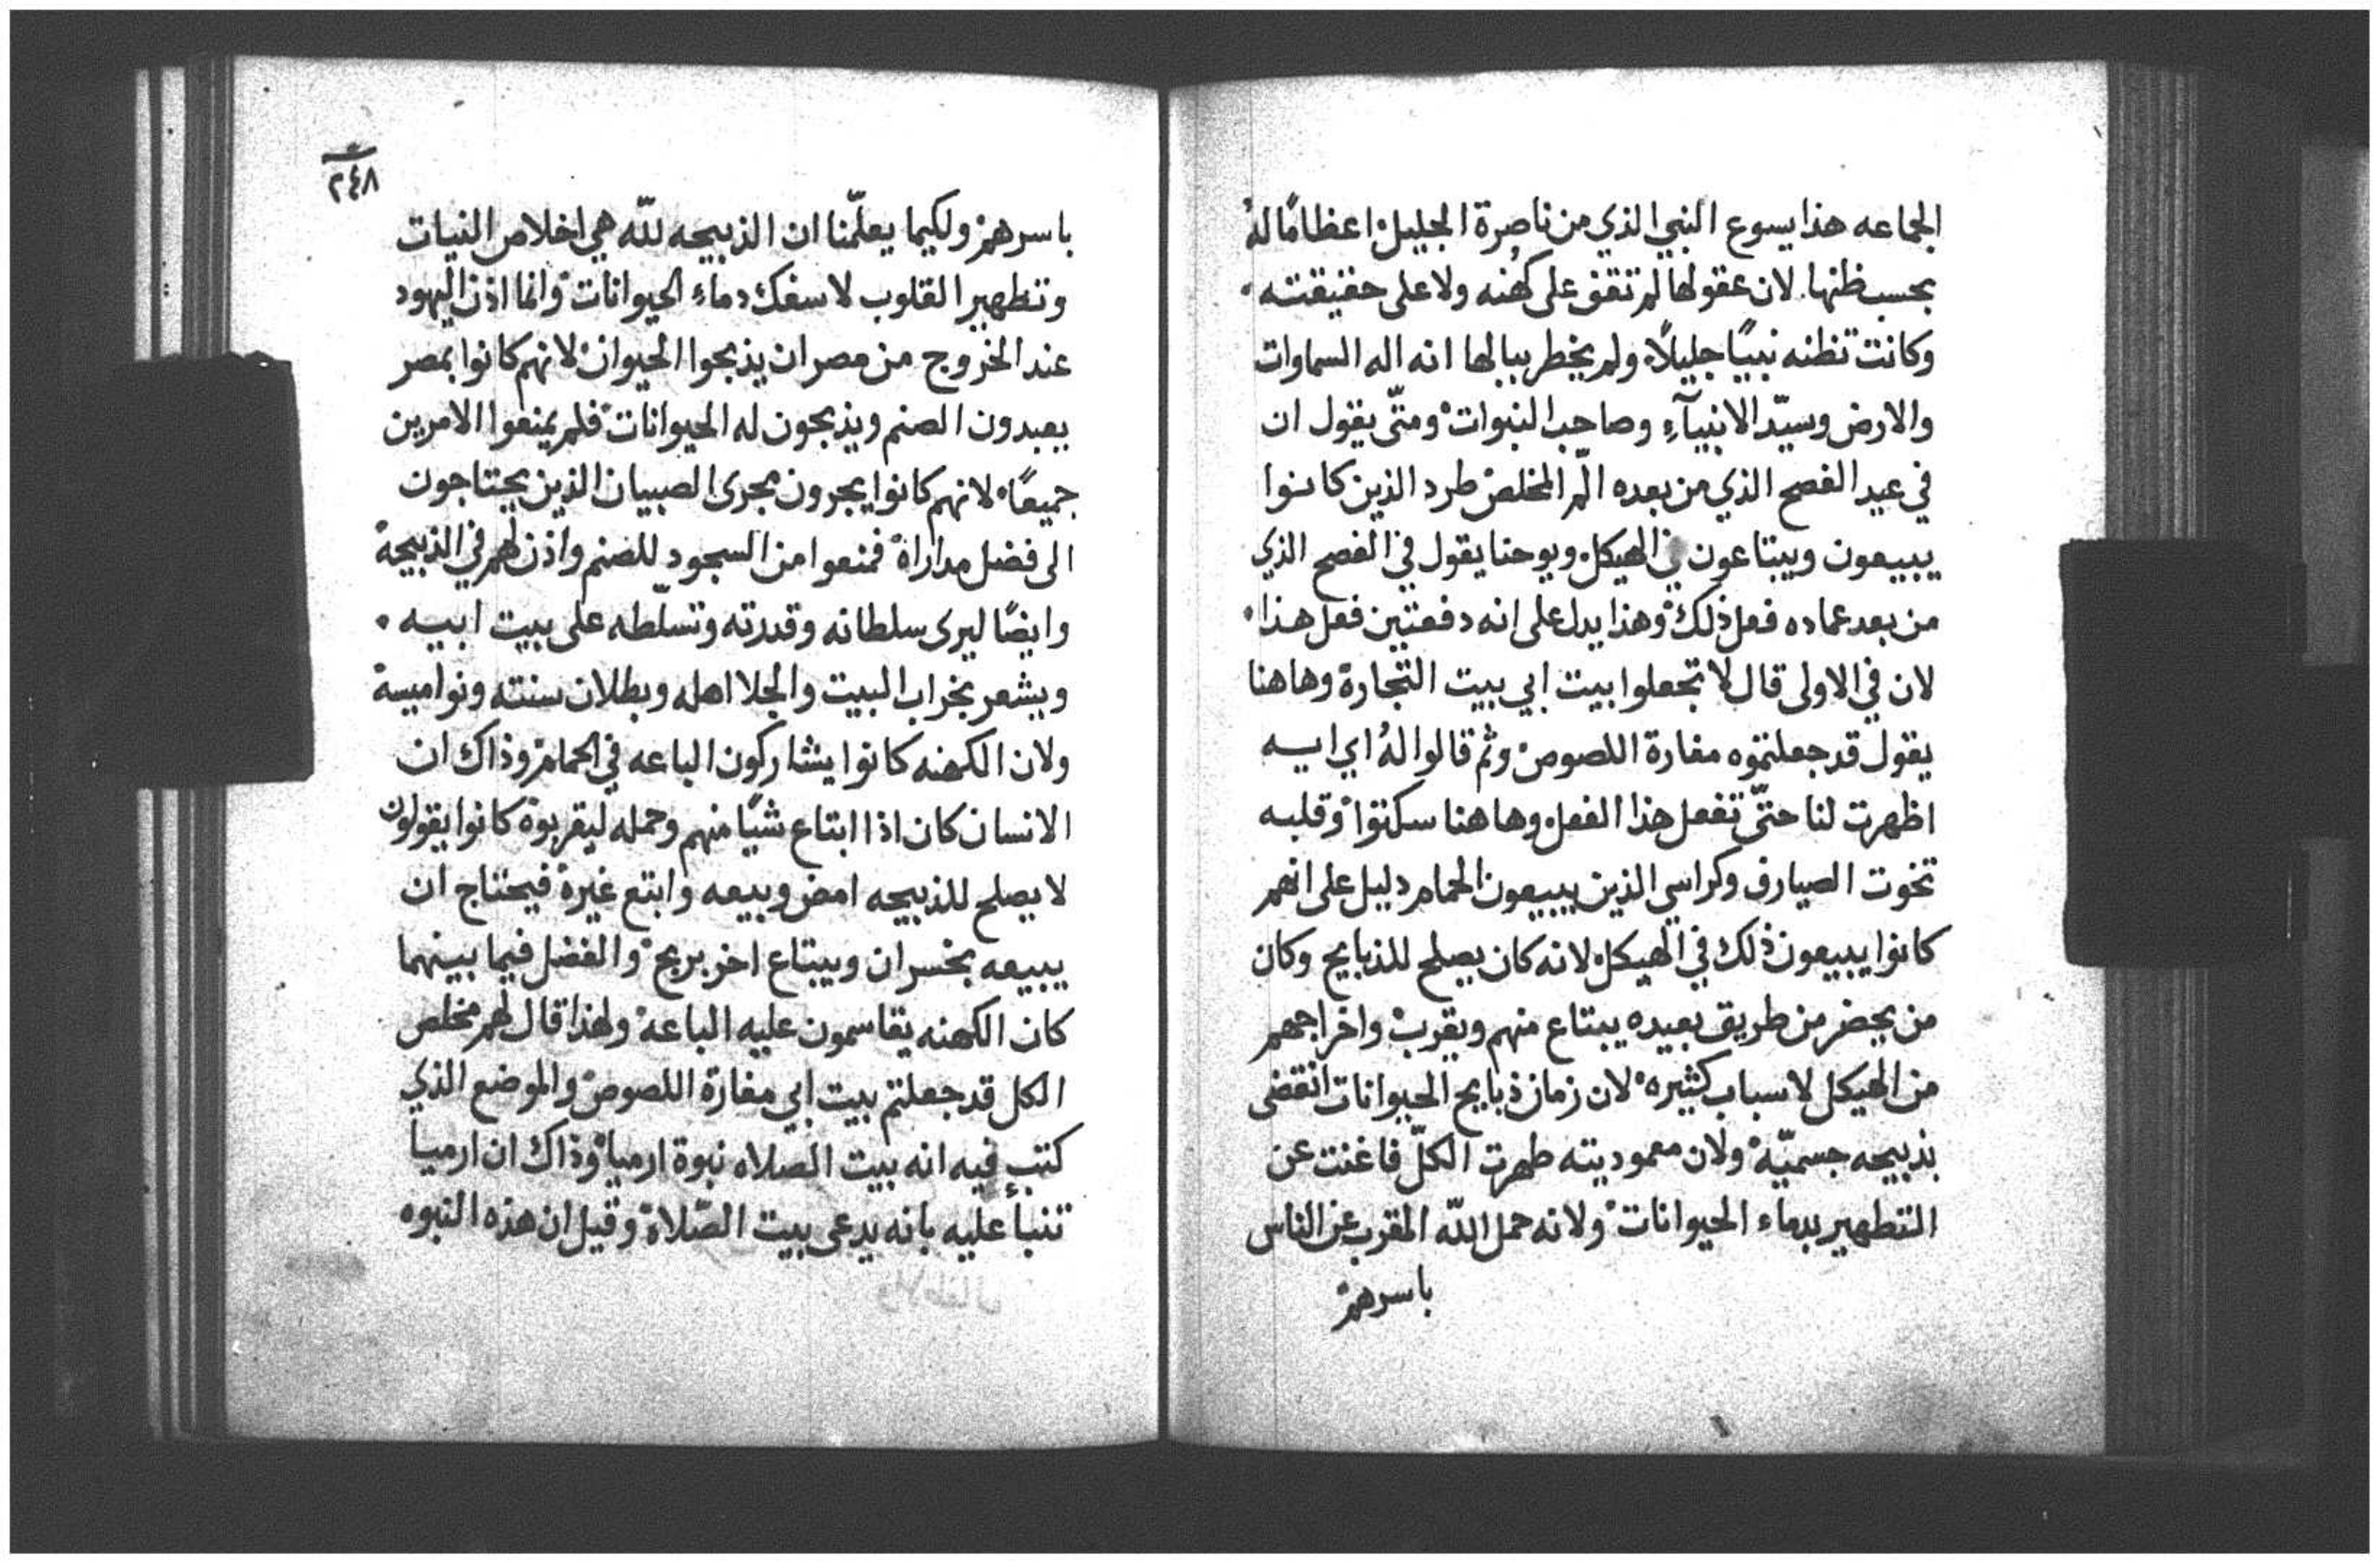 الجماعه هذا يسوع النبي الذي من ناصرة الجليل اعظامًا لهُ
بحسب ظنها. لان عقولها لم تقف على كُنهه ولا على حقيقته.
وكانت تظنه نبيًا جليلاً، ولم يخطر ببالها انه اله السماوات
والارض وسيّد الانبيآءِ وصاحب النبوات ومتّى يقول ان
في عيد الفصح الذي من بعده الّم المخلص طرد الذين كانوا
يبيعون ويبتاعون في الهيكل ويوحنا يقول في الفصح الذي
من بعد عماده فعل ذلك وهذا يدل على انه دفعتين فعل هذا.
لان في الاولى قال لا تجعلوا بيت ابي بيت التجارة وهاهنا
يقول قد جعلتموه مغارة اللصوص وثم قالوا لهُ اي ايه
اظهرت لنا حتّى تفعل هذا الفعل وهاهنا سكتوا وقلبه
تخوت الصيارف وكراسي الذين يبيعون الحمام دليل على انهم
كانوا يبيعون ذلك في الهيكل لانه كان يصلح للذبايح وكان
من يحضر من طريق بعيده يبتاع منهم ويقرب واخراجهم
من الهيكل لاسباب كثيره لان زمان ذبايح الحيوانات انقضى
بذبيحه جسميّة ولان معموديته طهرت الكلّ فاغنت عن
التطهير بدماء الحيوانات ولانه حمل اللّه المقرب عن الناس
باسرهم
٢٤٨
باسرهم ولكيما يعلّمنا ان الذبيحه للّه هي اخلاص النيات
وتطهير القلوب لا سفك دماءِ الحيوانات وانما اذن اليهود
عند الخروج من مصر ان يذبحوا الحيوان لانهم كانوا بمصر
يعبدون الصنم ويذبحون له الحيوانات فلم يمنعوا الامرين
جميعًا لانهم كانوا يجرون مجرى الصبيان الذين يحتاجون
الى فضل مداراة فمنعوا من السجود للصنم واذن لهم في الذبيحة
وايضًا ليرى سلطانه وقدرته وتسلّطه على بيت ابيه.
ويشعر بخراب البيت والجلا اهله وبطلان سنته ونواميسة
ولان الكهنه كانوا يشاركون الباعه في الحمام وذاك ان
الانسان كان اذا ابتاع شيًا منهم وحمله ليقربوة كانوا يقولون
لا يصلح للذبيحه امض وبيعه وابتع غيرة فيحتاج ان
يبيعه بخسران ويبتاع اخر بربح والفضل فيما بينهما
كان الكهنه يقاسمون عليه الباعة ولهذا قال لهم مخلص
الكل قد جعلتم بيت ابي مغارة اللصوص والموضع الذي
كتب فيه انه بيت الصلاه نبوة ارميا وذاك ان ارميا
تنبأ عليه بانه يدعى بيت الصّلاة وقيل ان هذه النبوه